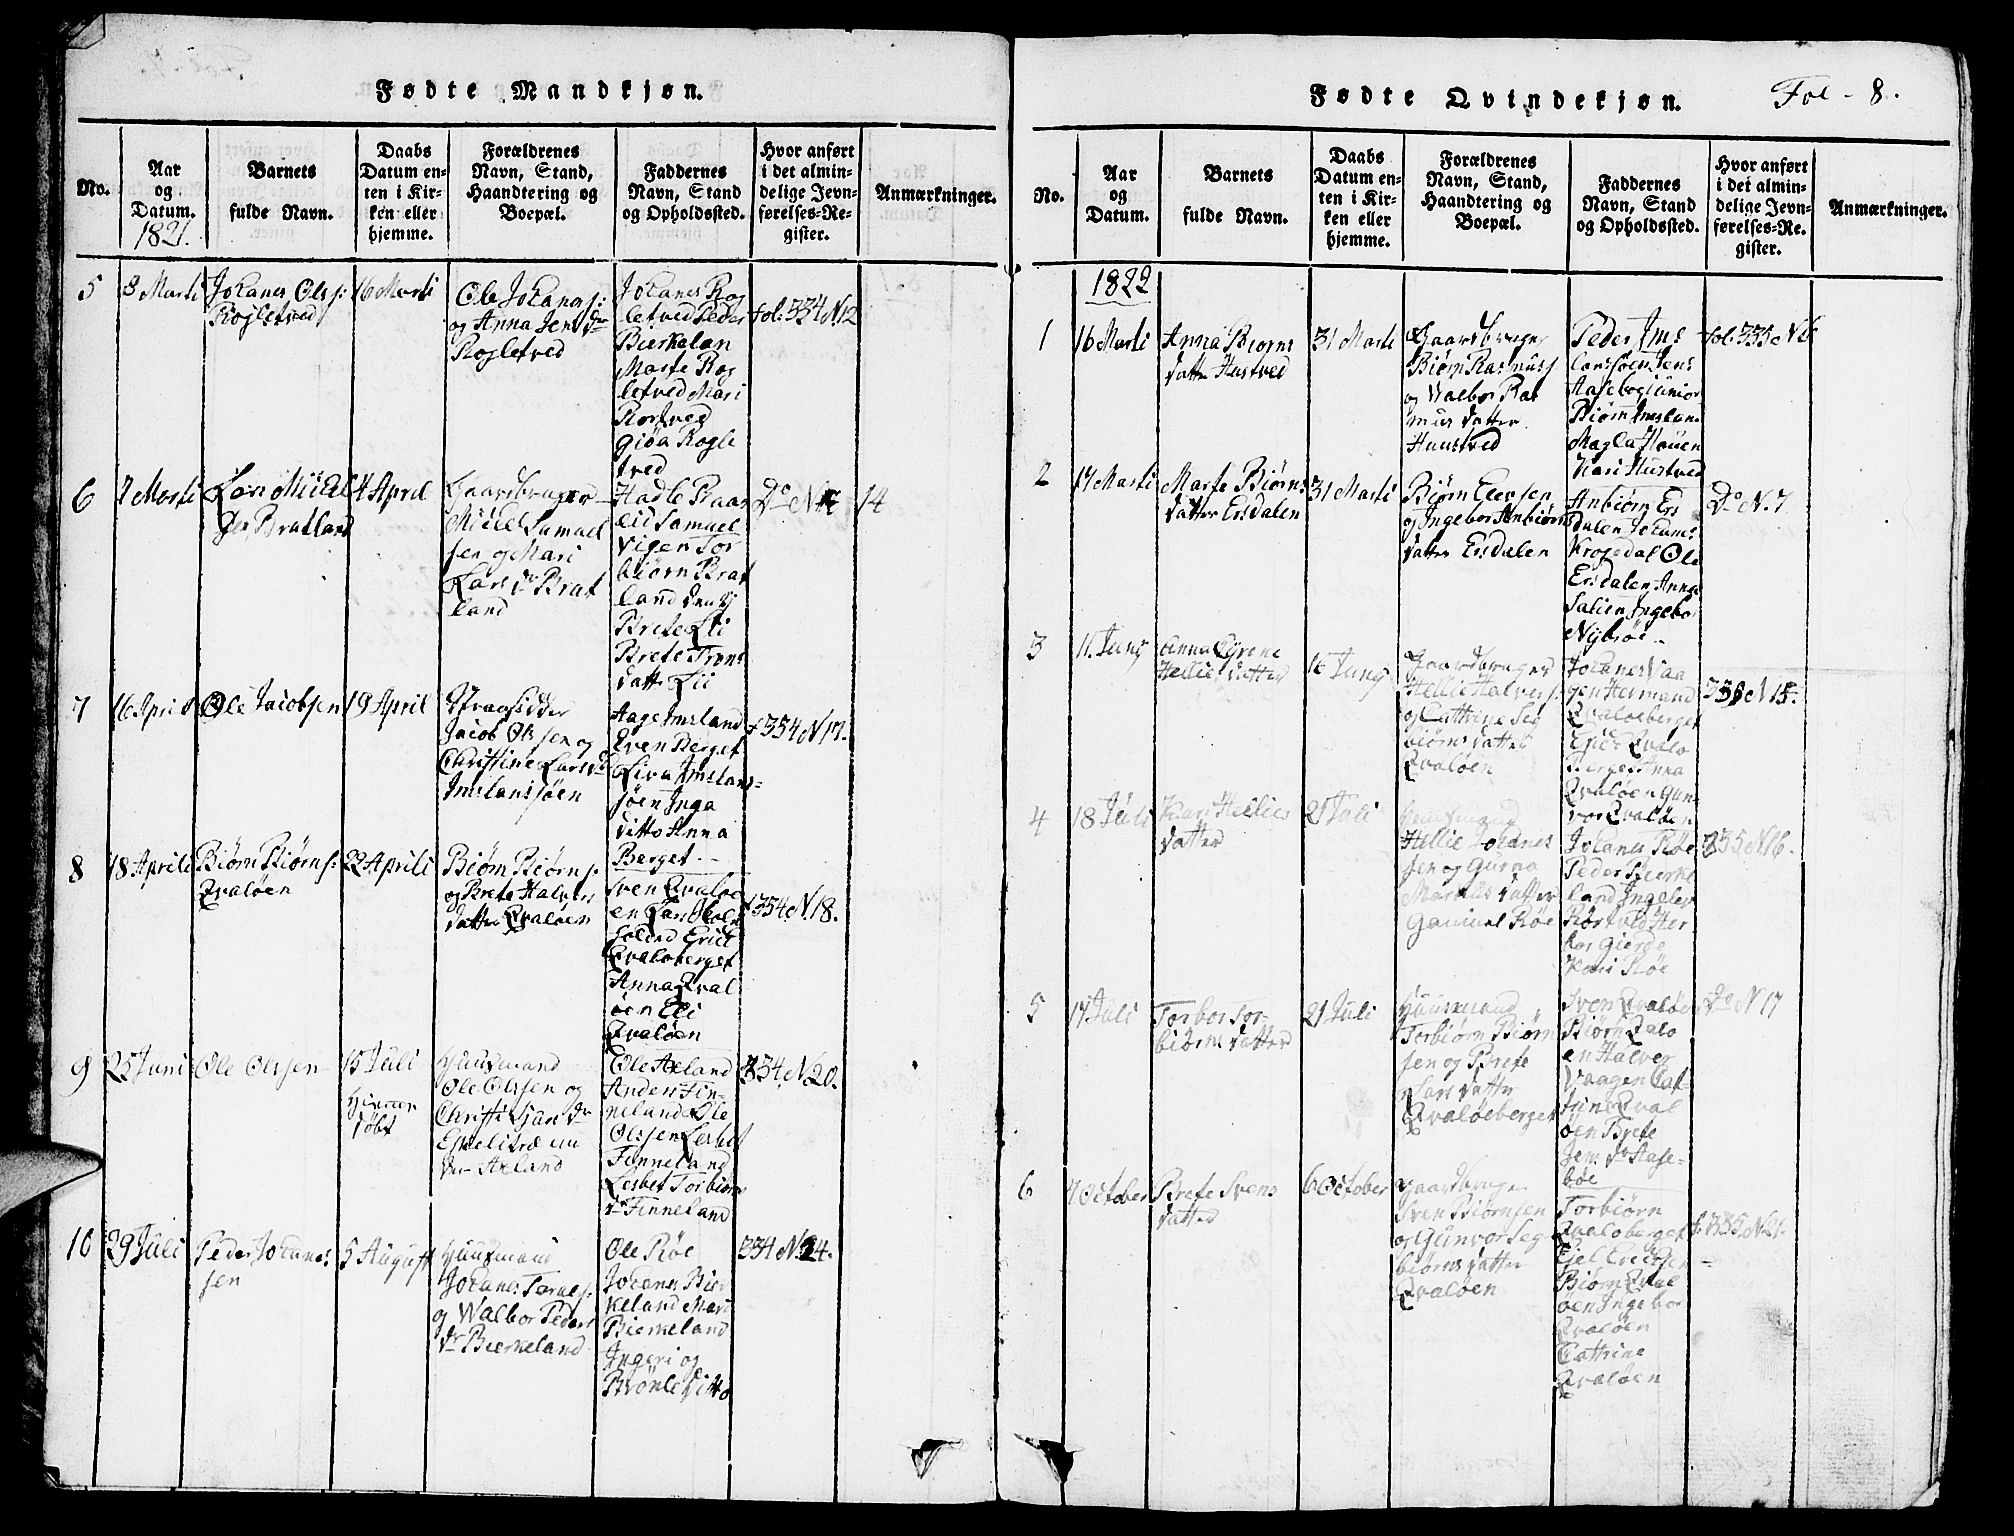 Fødte Mandkjøn.
No.
Aar
og
Datum.
1821.
Barnets
fulde Navn.
Daabs
Datum en-
ten i Kir-
ken eller
hjemme.
Forældrenes
Navn, Stand,
Haandtering og
Boepæl.
Faddernes
Navn, Stand
og Opholdssted.
Hvor anført
i det almin-
delige Jevn-
førelses-Re-
gister.
Anmærkninger.
5
8 Marti
Johanes Ols s:
Rogletved
16 Marti
Ole Johanas:
og Anna Jens dr
Rogletved
Johanes Rog
letved Peder
Bierkelan
Marte Rog
letved Mari
Rortved
giøa Rogle
tved
fol: 334 N 12
6
7 Marti
Lars Mickel
Bratland
4 April
Gaardbruger
Mickel Samuel
sen og Mari
Lars dr Brat
land
Hadle Raas
lid Samuel
Vigen Tor
biørn Brat
land
Brete Lii
Brete Trons
datter Lii
Do N
14
7
16 April
Ole Jacobsen
19 April
Stransidder
Jacob Olssen og
Christine Lars dr
Imslansjøen
Aage Imsland
Even Berget
Liva Imslans-
jøen Inga
ditto Anna
Berget
f 334 N 17.
8
18 Aprili
Biørn Biørns:
Qvaløen
22 Aprili
Biørn Biørns.
og Brete Halvers
datter Qvaløen
Sven Qvaløe
en Lars
Erick
Qvaloberget
Anna Qval
øen Eli
Qvaløen
f 334 N 18.
9
25 Juni
Ole Olssen
15 Juli
Hiemme
døbt
Huusmand
Ole Olssen og
Christi dr
Axland
Ole Axland
Anders Fin-
neland Ole
Olssen Lesbet
Finneland
Lesbet Torbiørns
dr Finneland
334 N 20.
10
29 Juli
Peder Johanes
sen
5 August
Huusmand
Johanes
og Walbor Peders
dr Bierkeland
Ole Røe
Johanes Bier
keland Mari
Bierkeland
Ingeri og
Brønle ditto
334 N 24.
Fødte Qvindekjøn.
Fol - 8.
No.
Aar
og
Datum.
Barnets
fulde Navn.
Daabs
Datum en-
ten i Kir-
ken eller
hjemme.
Forældrenes
Navn, Stand,
Haandtering og
Boepæl.
Faddernes
Navn, Stand
og Opholdssted.
Hvor anført
i det almin-
delige Jevn-
førelses-Re-
gister.
Anmærkninger.
1822
1
16 Marti
Anna Biørns
datter Hustved
31 Marti
Gaardbruger
Biørn Rasmuss
og Valbor Ras
mus datter
Huustved
Peder Ims
lansøen Jens
Haseboe junior
Biørn Imslan
Magla Hauen
Kari Hustved
fol: 335 N 6
2
17 Marti
Marte Biørns
datter Ersdalen
31 Marti
Biørn Eversen
og Ingebor Anbiørns
datter Ersdalen
Anbiørn Ers
dalen Johans
Krogedal Ole
Ersdalen Anna
Salien Ingebor
Nybrøe
Do N. 7
3
11. Juny
Anna Cyrene
Hellies datter
16 Juny
Gaardbruger
Hellie Halvers:
og Cattrine Seg
biørns datter
Qvaløen
Johanes Vaa
gen Hermand
Qvaloeberget
Erick Qvalo
berget Anna
Qvaløen Gun
vor Qvaløen
335 N 15.
4
18 Juli
Kari Hellies
datter
21 Juli
Huusmand
Hellie Johanes
sen og Gurua
Markus datter
Gamuel Røe
Johanes Røe
Peder Bierke
land Ingeler
Rørtved Her
bor Gierde
Kari Røe
335 N 16.
5
17 Juli
Torbor Tor-
biørns datter
21 Juli
Huusmand
Torbiørn Biørn
sen og Brete
Lars datter
Qvaløeberget
Sven Qvaløen
Biørn Qvalo
en Halver
Vaagen Cat-
trine Qval
øen Brete
Jens dr Hase-
bøe
Do N 17
6
4 October
Brete Svens
datter
6 October
Gaardbruger
Sven Biørnsen
og Gunvor Seg
biørns datter
Qvaløen
Torbiørn
Qvaloberget
Giel Ericksen
Biørn Qval
øen Ingebor
Qvaløen
Cattrine
Qvaløen
f. 335. N 21.